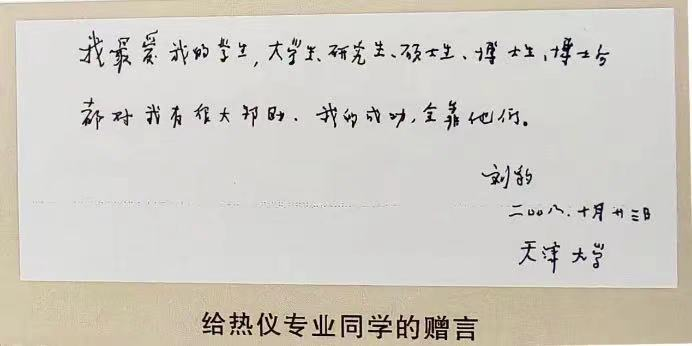 我最爱我的学生,大学生、研究生、硕士生、博士生,博士后
都对我有很大帮助.我的成功,全靠他们。
刘豹
二〇〇八.十月廿三日
天津大学
给热仪专业同学的赠言